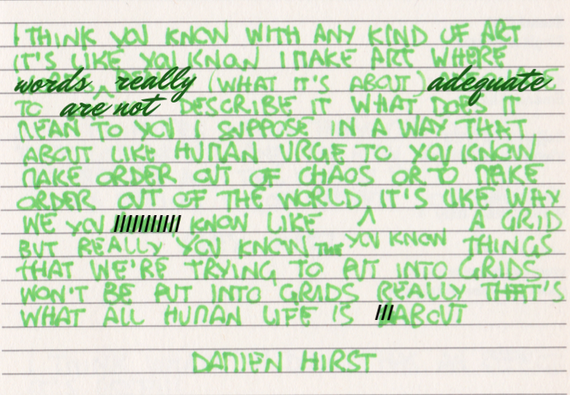 I THINK YOU KNOW WITH ANY KIND OF ART
IT'S LIKE YOU KNOW I MAKE ART WHERE
words really (WHAT IT'S ABOUT) adequate
TO are not DESCRIBE IT WHAT DOES IT
MEAN TO YOU I SUPPOSE IN A WAY THAT
ABOUT LIKE HUMAN URGE TO YOU KNOW
MAKE ORDER OUT OF CHAOS OR TO MAKE
ORDER OUT OF THE WORLD, IT'S LIKE WAY
WE YOU KNOW LIKE A GRID
BUT REALLY YOU KNOW THE YOU KNOW THINGS
THAT WE'RE TRYING TO PUT INTO GRIDS
WON'T BE PUT INTO GRIDS REALLY THAT'S
WHAT ALL HUMAN LIFE IS ABOUT
DAMIEN HIRST